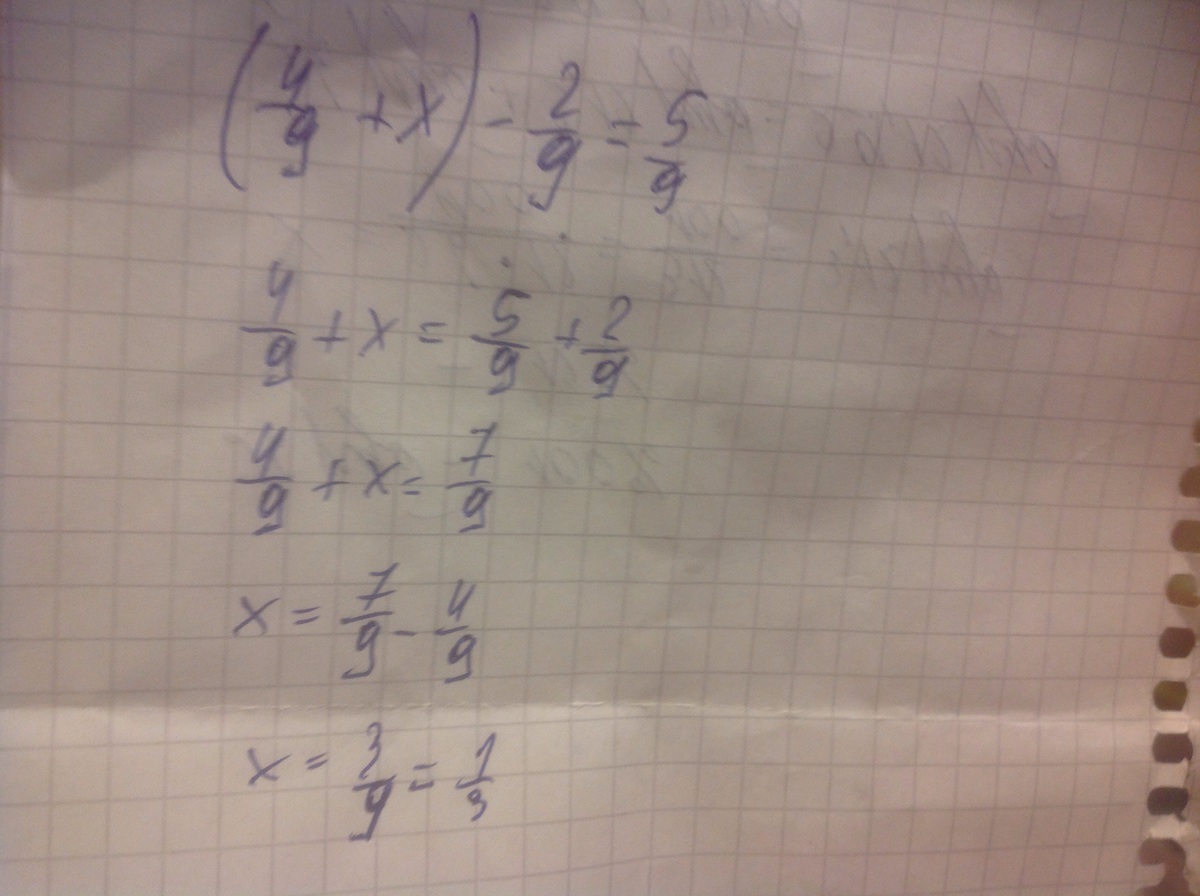 (4/9 + x) - 2/9 = 5/9
4/9 + x = 5/9 + 2/9
4/9 + x = 7/9
x = 7/9 - 4/9
x = 3/9 = 1/3